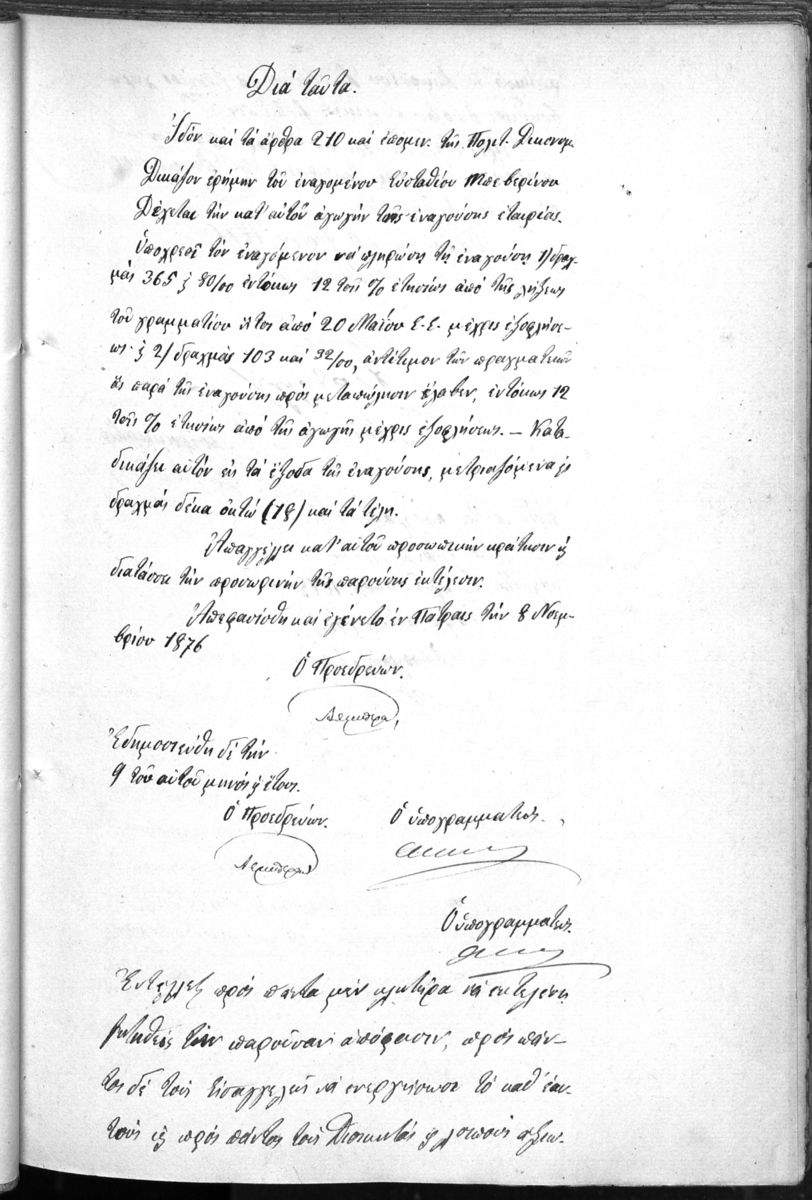 Διά ταῦτα.
Ἰδόν καί τά ἄρθρα 210 καί ἑπομεν. τῆς Πολιτ. Δικονομ.
Δικάζον ἐρήμην τοῦ ἐναγομένου Εὐσταθίου Μπεβερίνου
Δέχεται τήν κατ' αὐτοῦ ἀγωγήν τῆς ἐναγούσης ἑταιρίας.
Ὑποχρεοῖ τόν ἐναγόμενον νά πληρώσῃ τῇ ἐναγούσῃ 1) δραχ-
μάς 365 & 80/00 ἐντόκως 12 τοῖς % ἐτησίως ἀπό τῆς λήξεως
τοῦ γραμματίου ἤτοι ἀπό 20 Μαΐου Ε.Ε. μέχρις ἐξοφλήσε-
ως & 2) δραχμάς 103 καί 32/00, ἀντίτιμον τῶν πραγματειῶν
ἅς παρά τῆς ἐναγούσης πρός μεταπώλησιν ἔλαβεν, ἐντόκως 12
τοῖς % ἐτησίως ἀπό τῆς ἀγωγῆς μέχρις ἐξοφλήσεως. — Κατα-
δικάζει αὐτόν εἰς τά ἔξοδα τῆς ἐναγούσης, μετριαζόμενα εἰς
δραχμάς δέκα ὀκτώ (18) καί τά τέλη.
Ἀπαγγέλλει κατ' αὐτοῦ προσωπικήν κράτησιν &
διατάσσει τήν προσωρινήν τῆς παρούσης ἐκτέλεσιν.
Ἀπεφασίσθη καί ἐγένετο ἐν Πάτραις τήν 8 Νοεμ-
βρίου 1876
Ὁ Προεδρεύων.
Ἐδημοσιεύθη δέ τήν
9 τοῦ αὐτοῦ μηνός & ἔτους.
Ὁ Προεδρεύων. Ὁ ὑπογραμματεύς.
Ὁ ὑπογραμματεύς.
πρός πάντα μέν κλητῆρα νά ἐκτελέσῃ
τήν παροῦσαν ἀπόφασιν, πρός πάν-
τας δέ τούς Εἰσαγγελεῖς νά ἐνεργήσωσι τό καθ' ἑαυ-
τούς & πρός πάντας τούς Διοικητάς & λοιπούς ἀξιω-